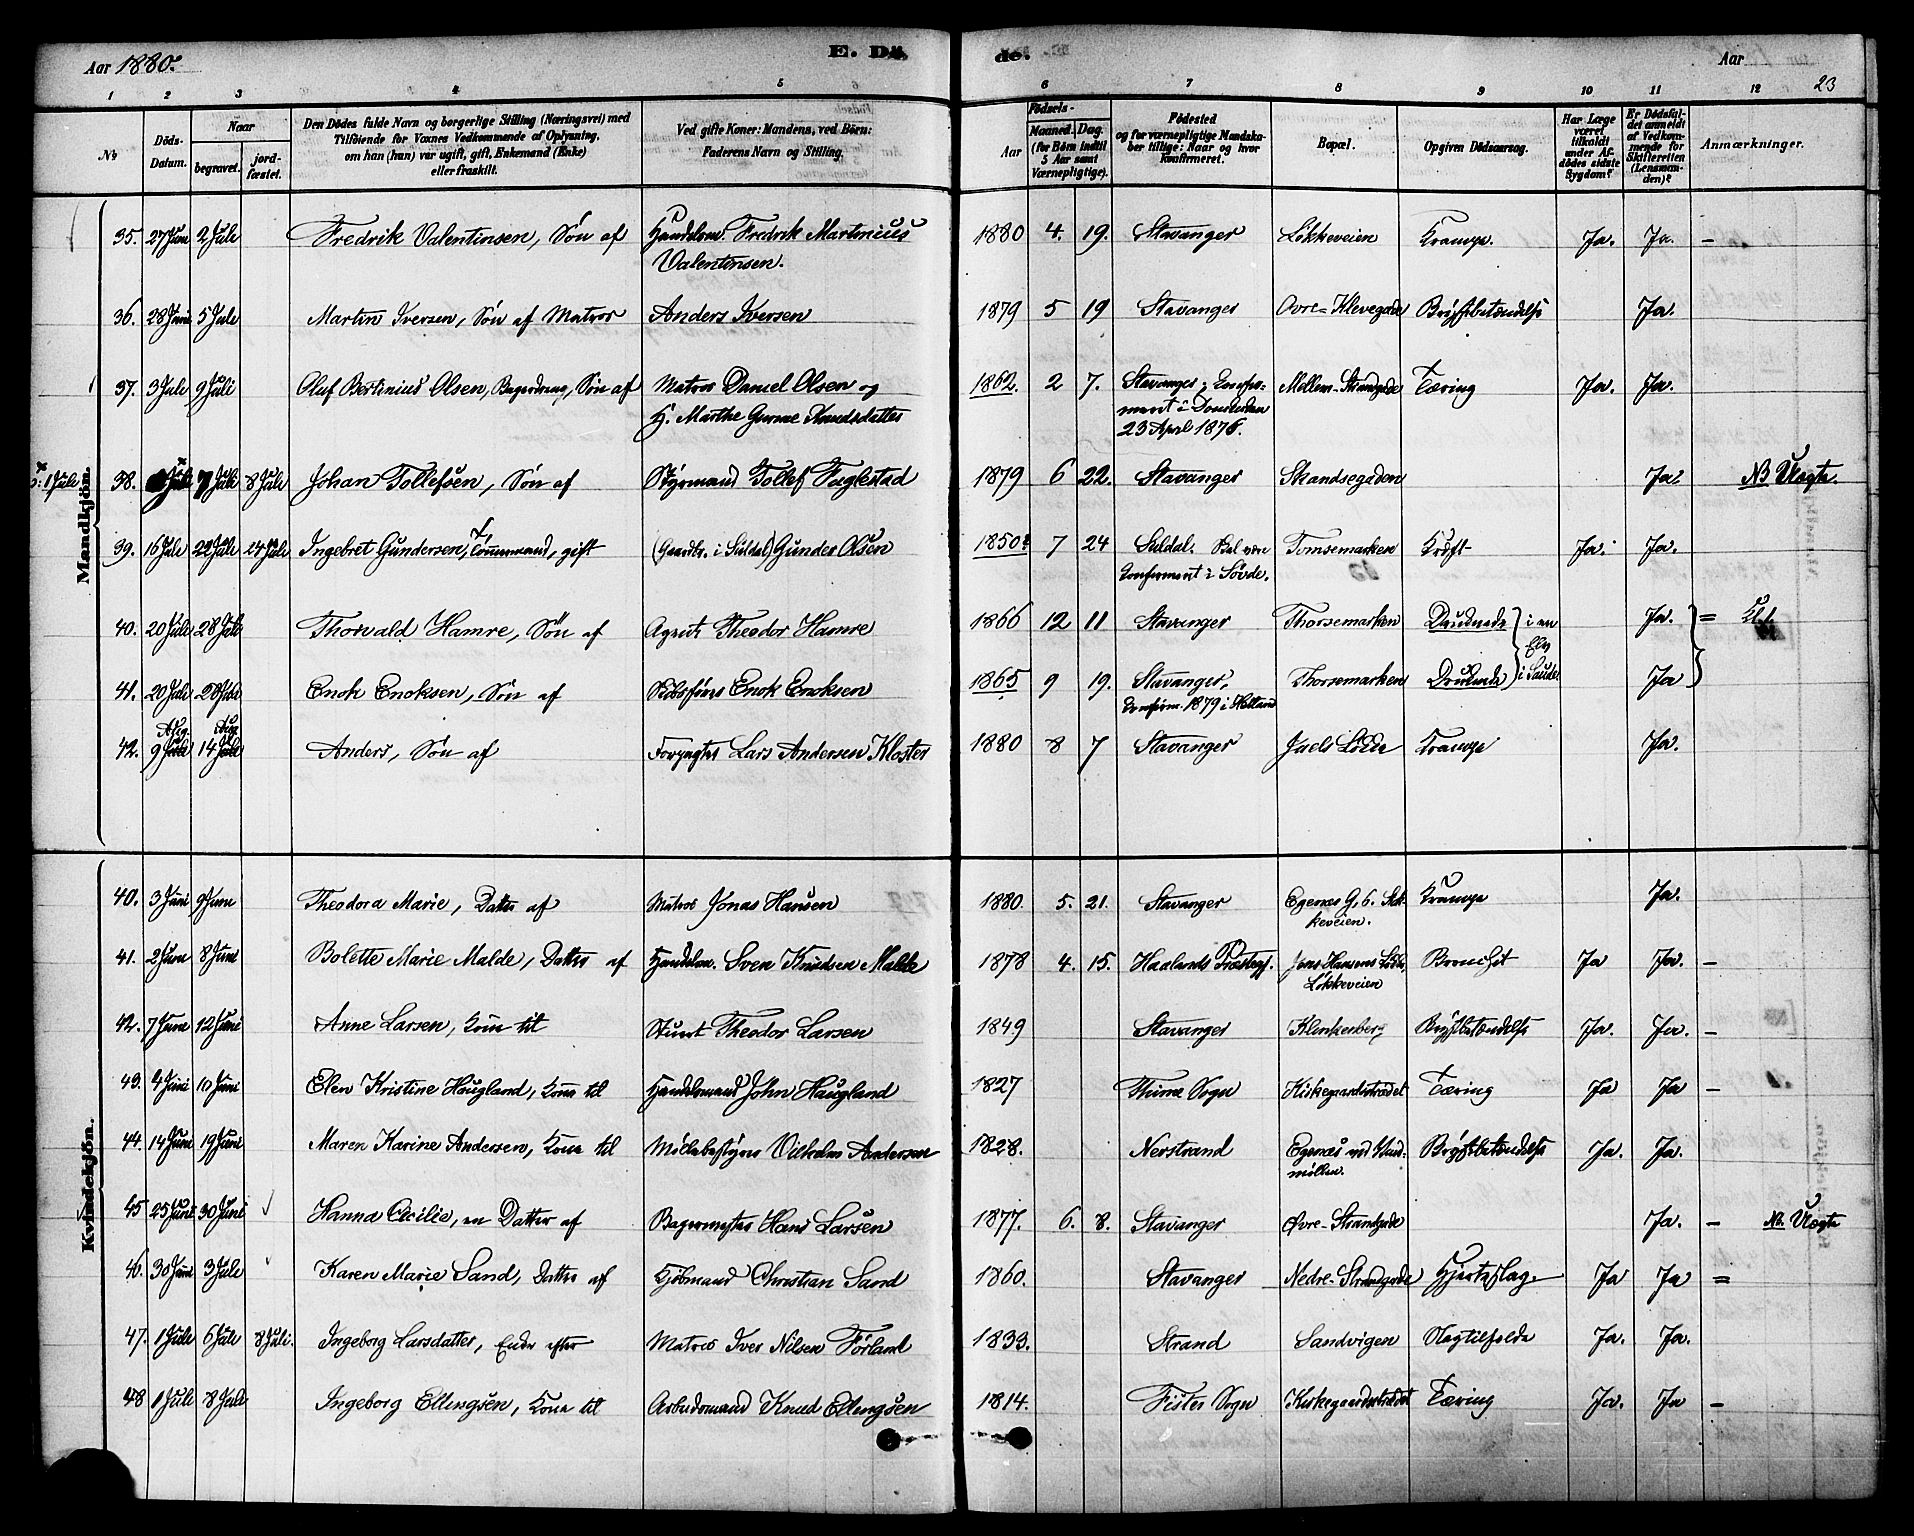 Aar 1880.
E. Dö-
de.
Aar
23
1 2 3 4 5 6 7 8 9 10 11 12
No
Döds-Datum.
Naar
begravet.
jord-fæstet.
Den Dödes fulde Navn og borgerlige Stilling (Næringsvei) med
Tilföiende for Voxnes Vedkommende af Oplysning,
om han (hun) var ugift, gift, Enkemand (Enke)
eller fraskilt.
Ved gifte Koner: Mandens, ved Börn:
Faderens Navn og Stilling.
Födsels-
Aar
Maaned. Dag.
(for Börn indtil
5 Aar samt
Værnepligtige).
Födested
og for værnepligtige Mandska-
ber tillige: Naar og hvor
konfirmeret.
Bopæl.
Opgiven Dödsaarsag.
Har Læge
været
tilkaldt
under Af-
dödes sidste
Sygdom?
Er Dödsfal-
det anmeldt
af Vedkom-
mende for
Skifteretten
(Lensman-
den)?
Anmærkninger.
Mandkjön.
35. 27 Juni 2 Juli Fredrik Valentinsen, Søn af Handelsm. Fredrik Martinius 1880 4. 19. Stavanger Løkkeveien Krampe. Ja. Ja. –
Valentinsen.
36. 28 Juni 5 Juli Martin Iversen, Søn af Matros Anders Iversen 1879 5 19 Stavanger Øvre-Klevegade Brystbetændelse Ja.
37. 3 Juli 9 Juli Oluf Bertinius Olsen, Bagerdreng, Søn af Matros Daniel Olsen og 1862. 2 7. Stavanger; Confir- Mellem-Strandgade Tæring Ja. Ja.
H. Marthe Gurine Knudsdatter meret i Domkirken
23 April 1876.
1 Juli 38. 7 Juli 8 Juli Johan Tollefsen, Søn af Styrmand Tollef Fuglestad 1879 6 22. Stavanger Skandsegaden Ja. NB Uægte
39. 16 Juli 22 Juli 24 Juli Ingebret Gundersen, Tømmermand, gift (Gaardbr. i Suldal) Gunder Olsen 1850? 7 24 Suldal. Skal være Tomsemarken Kræft Ja. Ja.
Confirmeret i Søvde.
40. 20 Juli 28 Juli Thorvald Hamre, Søn af Agent Theodor Hamre 1866 12 11 Stavanger Thorsemarken Druknede i en Ja. =
Elv
41. 20 Juli 28 Juli Enok Enoksen, Søn af Skibsfører Enok Enoksen 1865 9 19. Stavanger, Thorsemarken Druknede i Saude Ja
Konfirm. 1879 i Hetland
Aug. Aug.
42. 9 Juli 14 Juli Anders, Søn af Forpagter Lars Andersen Kloster 1880 8 7 Stavanger Jaels Lødde Krampe Ja.
Kvindekjön.
40. 3 Juni 9 Juni Theodora Marie, Datter af Matros Jonas Hansen 1880. 5. 21. Stavanger Egenæs G. 6. Løk- Krampe Ja.
keveien.
41. 2 Juni 8 Juni Bolette Marie Malde, Datter af Handelsm. Sven Knudsen Malde 1878 4. 15. Haalands Præstegj. Jens Hansens Lødde, Bronchit Ja Ja. –
Løkkeveien
42. 7 Juni 12 Juni Anne Larsen, Kone til Stuert Theodor Larsen 1849 Stavanger Klinkenberg Brystbetændelse Ja. Ja. –
43. 4 Juni 10 Juni Elen Kristine Haugland, Kone til Handelsmand John Haugland 1827 Thime Sogn Kirkegaardstrædet Tæring Ja Ja –
44. 14 Juni 19 Juni Maren Karine Andersen, Kone til Møllebestyrer Vilhelm Andersen 1828. Nerstrand Egenæs ved Vand- Brystbetændelse Ja. Ja.
møllen.
45 25 Juni 30 Juni Hanna Cecilie, en Datter af Bagermester Hans Larsen 1877. 6. 8. Stavanger Øvre-Strandgade Ja. – NB. Uægte
46. 30 Juni 3 Juli Karen Marie Sand, Datter af Kjøbmand Christian Sand 1860. Stavanger Nedre-Strandgade Hjerteslag. Ja Ja =
47. 1 Juli 6 Juli 8 Juli. Ingeborg Larsdatter, Enke efter Matros Iver Nilsen Førland 1833. Strand Sandvigen Ja. Ja.
48 1 Juli 8 Juli Ingeborg Ellingsen, Kone til Arbeidsmand Knud Ellingsen 1814. Fister Sogn Kirkegaardstrædet Tæring Ja. Ja –